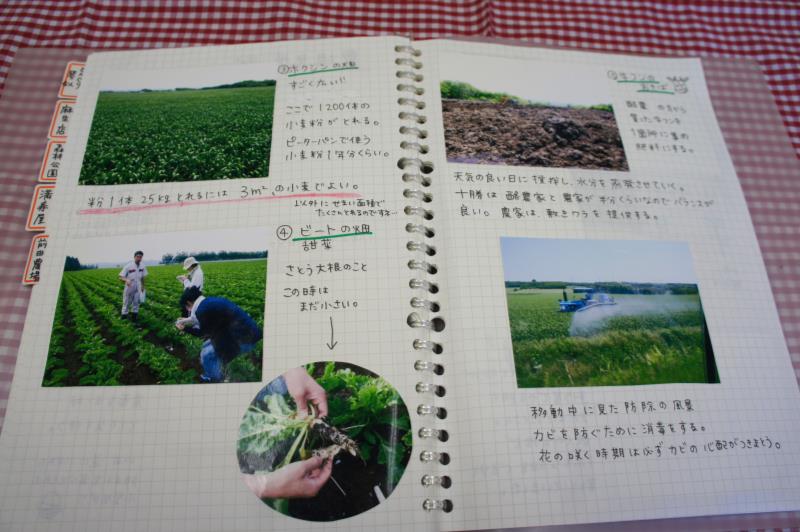 麻生店
森林公園
満寿屋
前田農場
③ホクシンの畑
すごく広い!
ここで1200体の
小麦粉がとれる。
ピーターパンで使う
小麦粉1年分くらい。
粉1体25kgとれるには3m²の小麦でよい。
以外にせまい面積で
たくさんとれるのですネ…
④ビートの畑
甜菜
さとう大根のこと
この時は
まだ小さい。
⑤牛フンの
酪農の方から
買った牛フンを
1箇所に集め
肥料にする。
天気の良い日に撹拌し、水分を蒸発させていく。
十勝は酪農家と農家が半分くらいなのでバランスが
良い。農家は、敷きワラを提供する。
移動中に見た防除の風景
カビを防ぐために消毒をする。
花の咲く時期は必ずカビの心配がつきまとう。